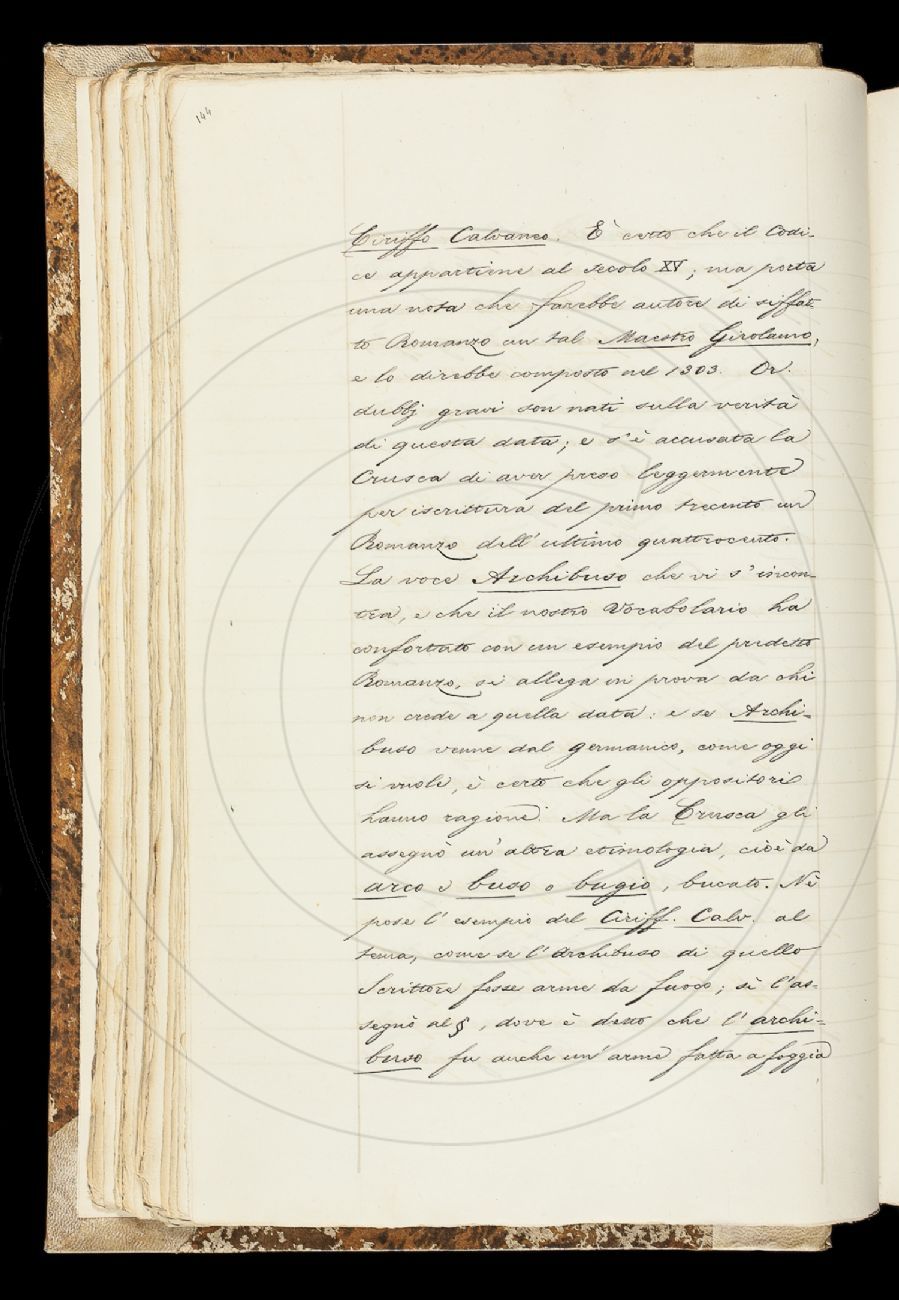 144
Ciriffo Calvaneo. È certo che il Codi-
ce appartiene al secolo XV; ma porta
una nota che farebbe autore di siffat-
to Romanzo un tal Maestro Girolamo,
e lo direbbe composto nel 1303. Or.
dubbj gravi son nati sulla verità
di questa data; e s'è accusata la
Crusca di aver preso leggermente
per iscrittura del primo trecento un
Romanzo dell'ultimo quattrocento.
La voce Archibuso che vi s'incon-
tra, e che il nostro Vocabolario ha
confortato con un esempio del predetto
Romanzo, si allega in prova da chi
non crede a quella data: e se Archi-
buso venne dal germanico, come oggi
si vuole, è certo che gli oppositori
hanno ragione. Ma la Crusca gli
assegnò un'altra etimologia, cioè da
arco e buso o bugio, bucato. Nè
pose l'esempio del Ciriff. Calv. al
tema, come se l'Archibuso di quello
Scrittore fosse arme da fuoco; sì l'as-
segnò al §, dove è detto che l'archi-
buso fu anche un'arme fatta a foggia